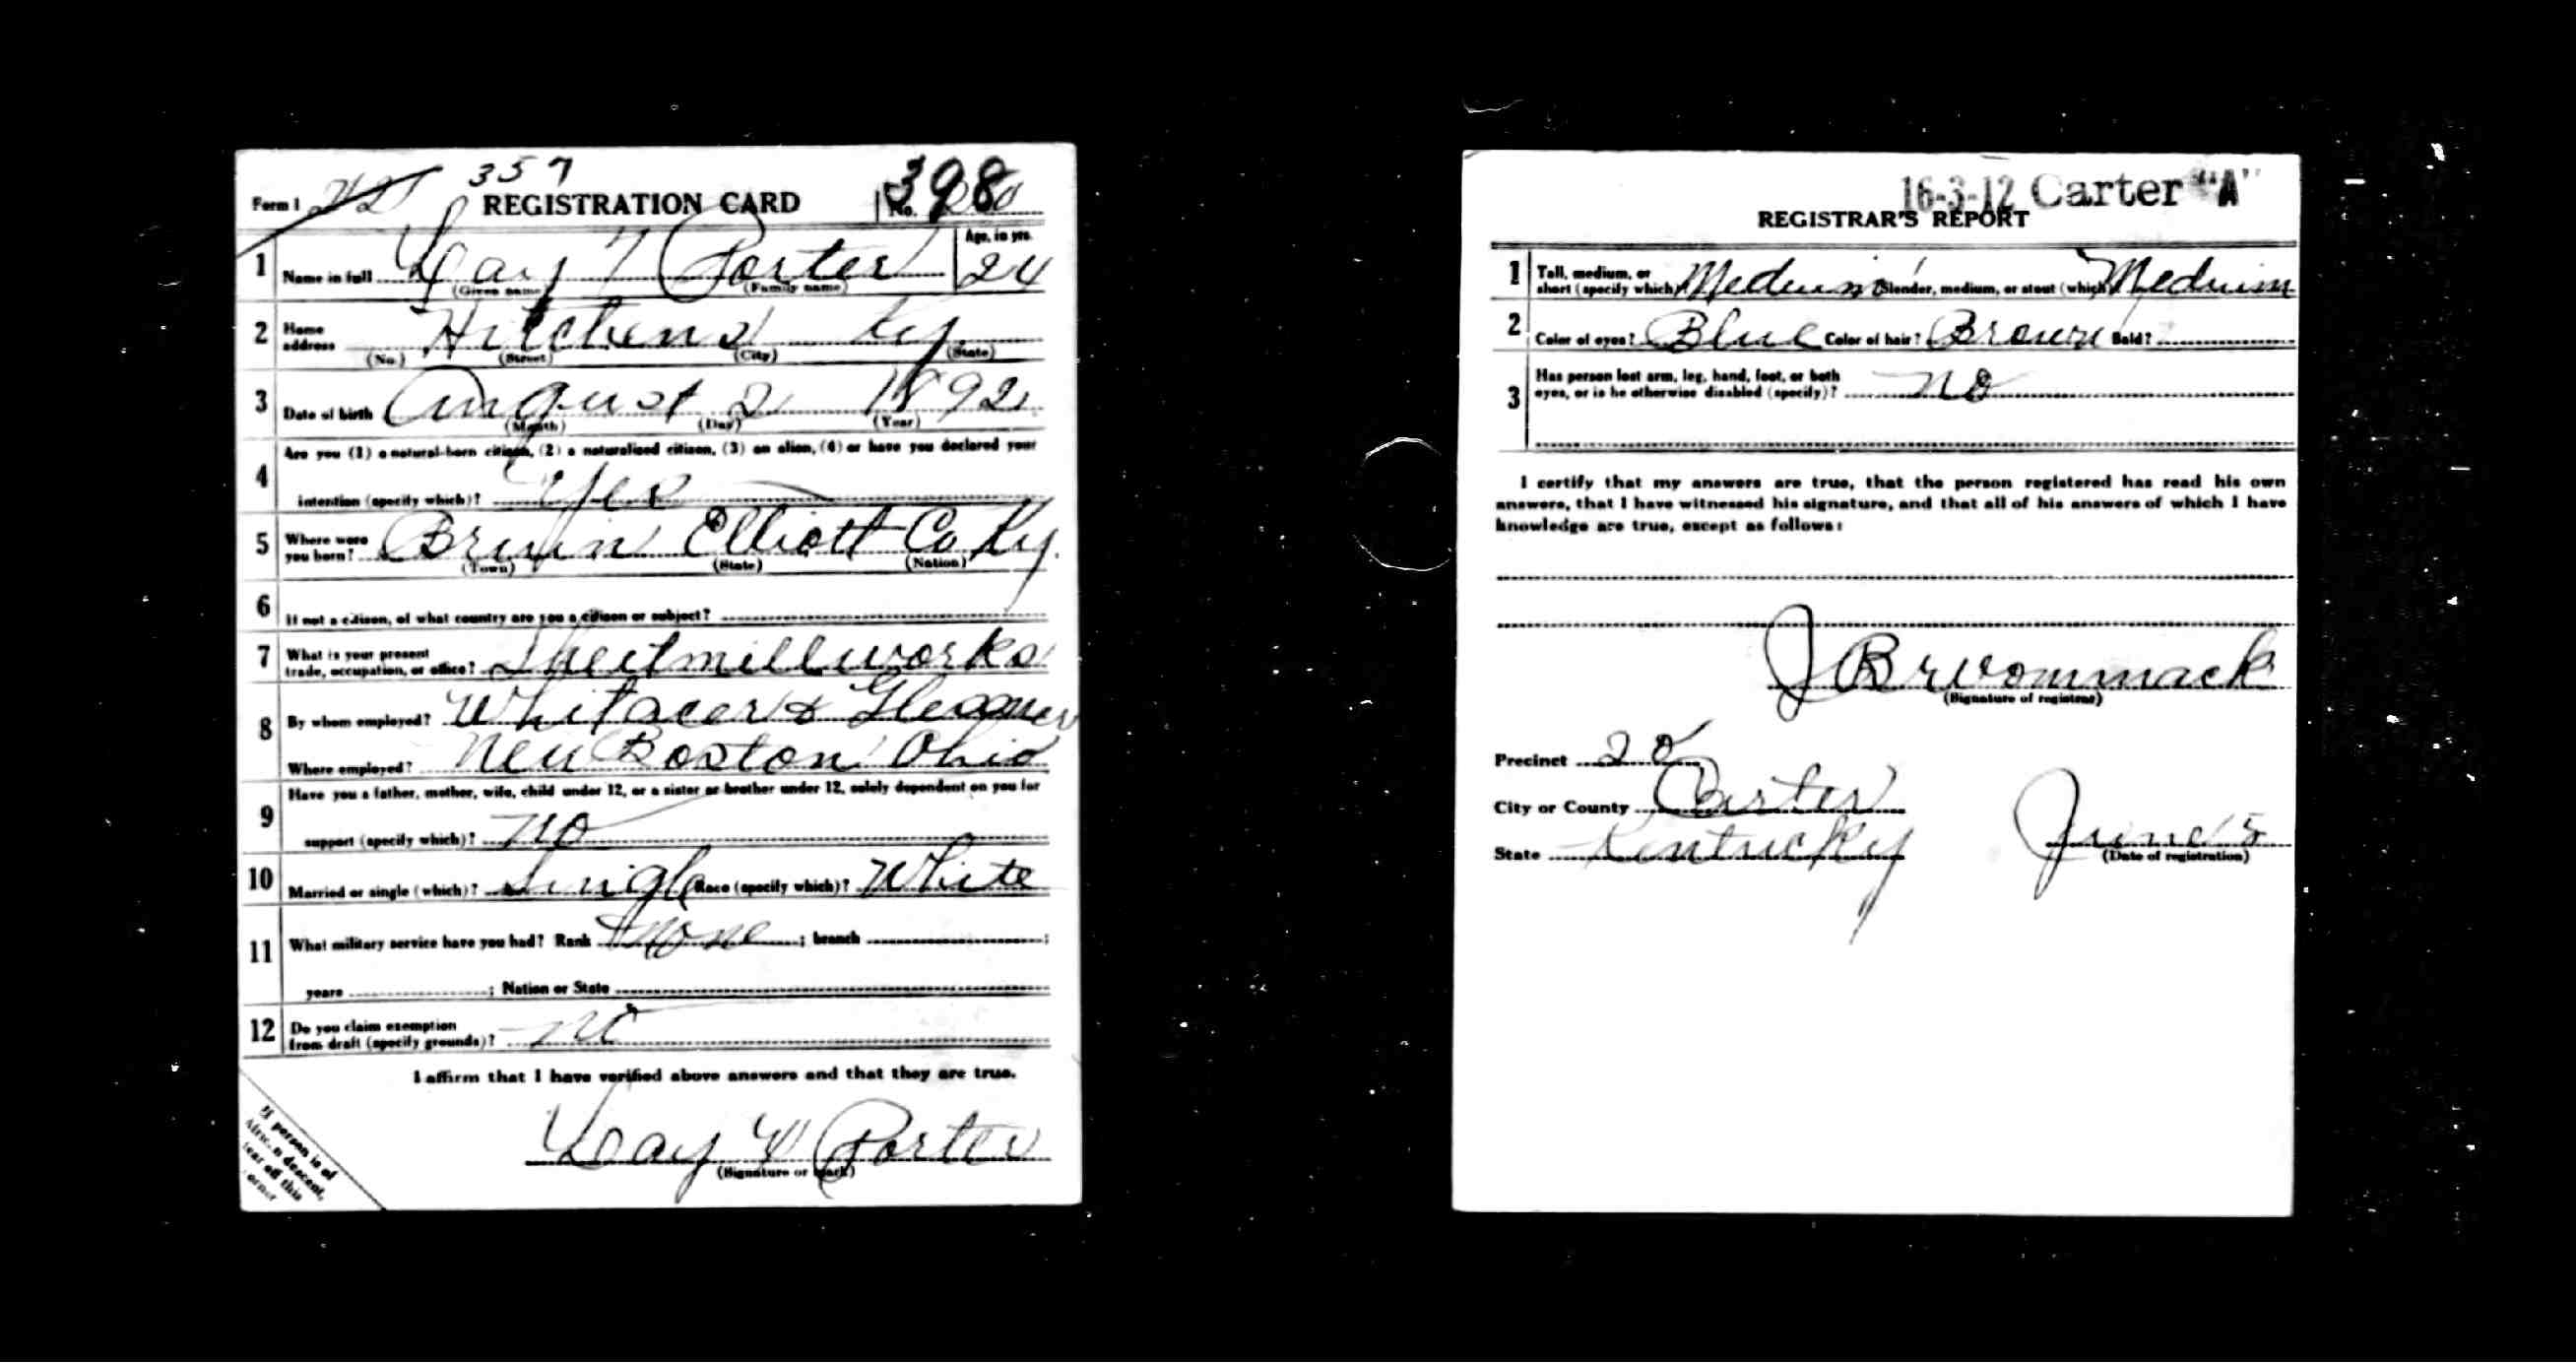 357
Form 1 REGISTRATION CARD No. 398
1 Name in full Porter Age, in yrs. 24
(Given name) (Family name)
2 Home address Hitchens Ky
(No.) (Street) (City) (State)
3 Date of birth August 2 1892
(Month) (Day) (Year)
Are you (1) a natural-born citizen, (2) a naturalized citizen, (3) an alien, (4) or have you declared your
4 intention (specify which)? Yes
5 Where were you born? Bruin Elliott Co Ky.
(Town) (State) (Nation)
6 If not a citizen, of what country are you a citizen or subject?
7 What is your present trade, occupation, or office? Sheetmillworks
8 By whom employed? Whitacer & Glessner
Where employed? New Boston Ohio
Have you a father, mother, wife, child under 12, or a sister or brother under 12, solely dependent on you for
9 support (specify which)? No
10 Married or single (which)? Single Race (specify which)? White
11 What military service have you had? Rank None ; branch ;
years ; Nation or State
12 Do you claim exemption from draft (specify grounds)? No
I affirm that I have verified above answers and that they are true.
Porter
(Signature or mark)
If person is of
African descent,
tear off this
corner
16-3-12 Carter "A"
REGISTRAR'S REPORT
1 Tall, medium, or short (specify which) Medium Slender, medium, or stout (which) Medium
2 Color of eyes? Blue Color of hair? Brown Bald?
3 Has person lost arm, leg, hand, foot, or both eyes, or is he otherwise disabled (specify)? No
I certify that my answers are true, that the person registered has read his own
answers, that I have witnessed his signature, and that all of his answers of which I have
knowledge are true, except as follows:
(Signature of registrar)
Precinct 20
City or County Carter
State Kentucky June 5
(Date of registration)